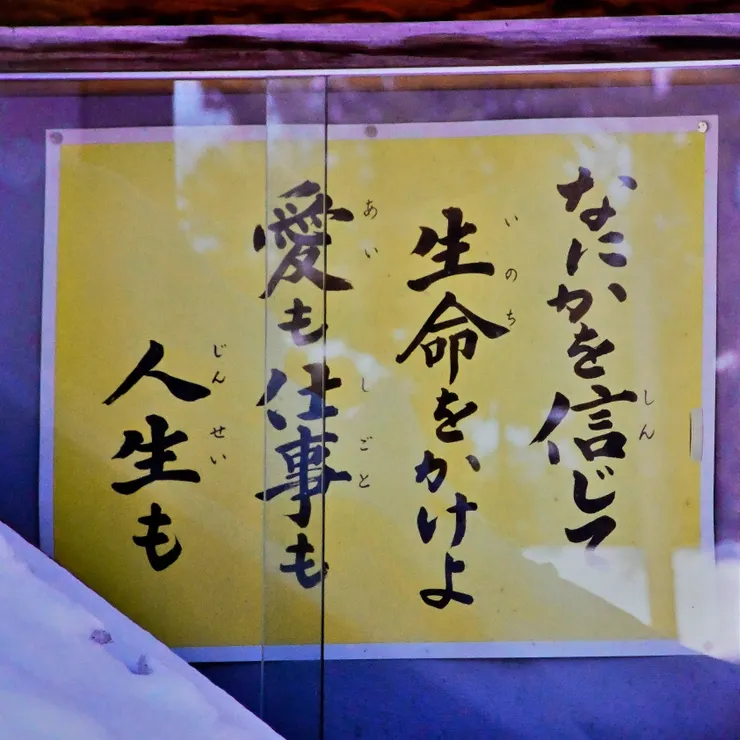 なにかを信じて
しん
生命をかけよ
いのち
愛も仕事も
あい しごと
人生も
じんせい